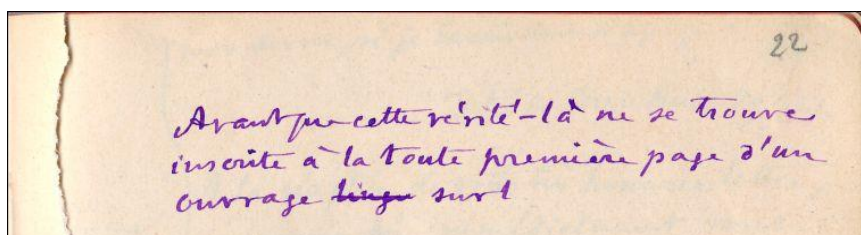 22
Avant que cette vérité-là ne se trouve
inscrite à la toute première page d'un
ouvrage lingu surl